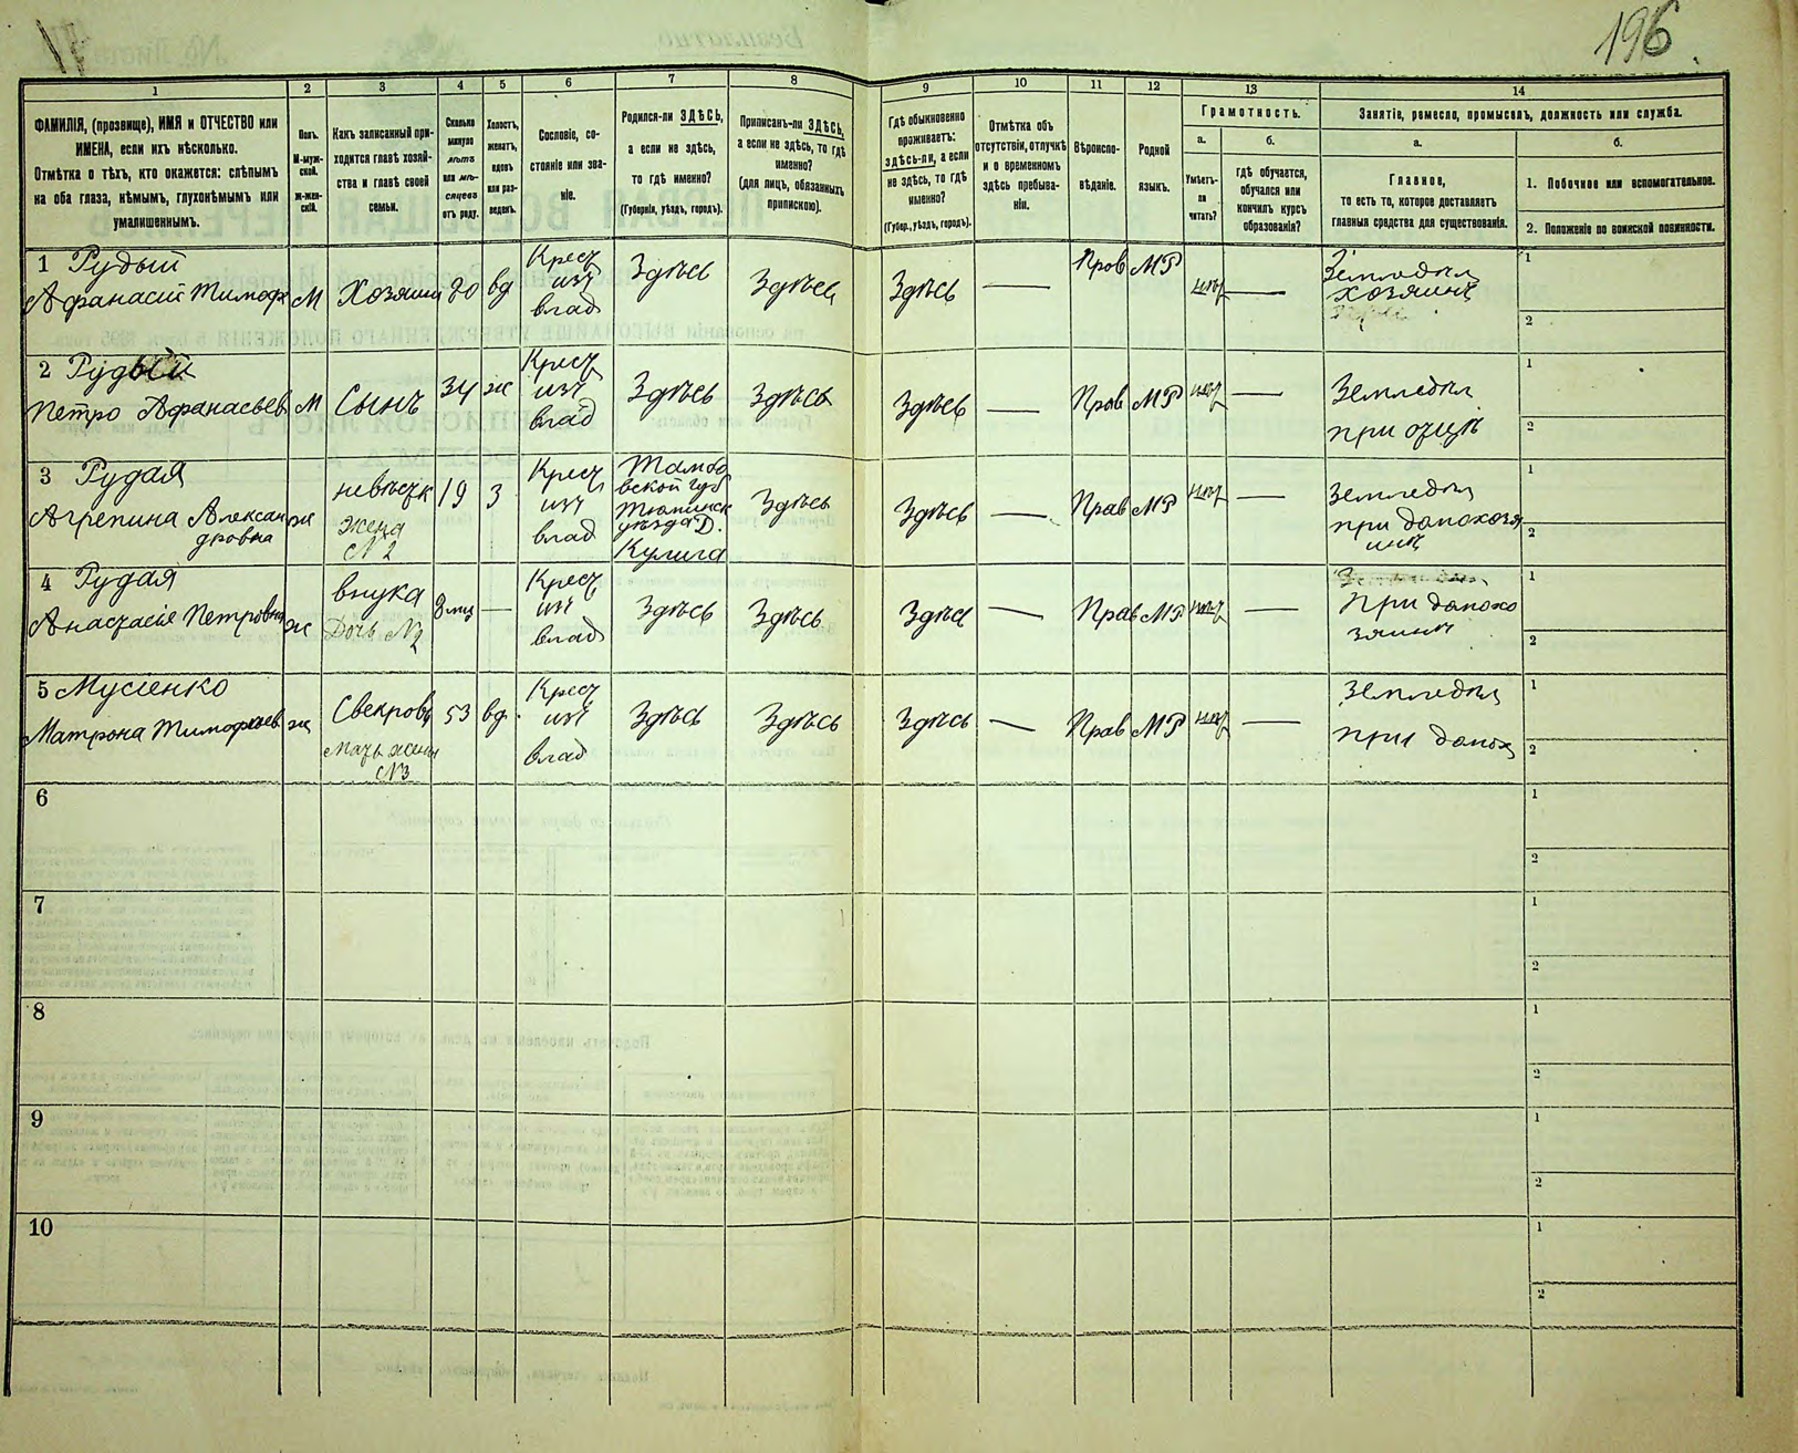 196
1
2
3
4
5
6
7
8
9
10
11
12
13
14
ФАМИЛІЯ, (прозвище), ИМЯ и ОТЧЕСТВО или
ИМЕНА, если ихъ нѣсколько.
Отмѣтка о тѣхъ, кто окажется: слѣпымъ
на оба глаза, нѣмымъ, глухонѣмымъ или
умалишеннымъ.
Полъ.
М-муж-
ской.
Ж-жен-
скій.
Какъ записанный при-
ходится главѣ хозяй-
ства и главѣ своей
семьи.
Сколько
минуло
лѣтъ
или мѣ-
сяцевъ
отъ роду.
Холостъ,
женатъ,
вдовъ
или раз-
веденъ.
Сословіе, со-
стояніе или зва-
ніе.
Родился-ли ЗДѢСЬ,
а если не здѣсь,
то гдѣ именно?
(Губернія, уѣздъ, городъ).
Приписанъ-ли ЗДѢСЬ,
а если не здѣсь, то гдѣ
именно?
(для лицъ, обязанныхъ
припискою).
Гдѣ обыкновенно
проживаетъ:
здѣсь-ли, а если
не здѣсь, то гдѣ
именно?
(Губер., уѣздъ, городъ).
Отмѣтка объ
отсутствіи, отлучкѣ
и о временномъ
здѣсь пребыва-
ніи.
Вѣроиспо-
вѣданіе.
Родной
языкъ.
Грамотность.
а.
Умѣетъ-
ли
читать?
б.
гдѣ обучается,
обучался или
кончилъ курсъ
образованія?
Занятіе, ремесло, промыселъ, должность или служба.
а.
Главное,
то есть то, которое доставляетъ
главныя средства для существованія.
б.
1. Побочное или вспомогательное.
2. Положеніе по воинской повинности.
1 Рудый
Афанасій Тимоф
М
Хозяин
вд
Крест
изъ
влад
Здѣсь
Здѣсь
Здѣсь
—
Пров
МР
нѣт
—
Земледѣл
хозяинъ
1
2
2 Рудый
Петро Афанасьев
М
Сынъ
34
ж
Крест
изъ
влад
Здѣсь
Здѣсь
Здѣсь
—
Прав
МР
нѣт
—
Земледѣл
при отцѣ
1
2
3 Рудая
Агрепина Алексан
дровна
ж
невѣстк
жена
№ 2
19
З
Крест
изъ
влад
Тамбо
вской губ
уѣзда Д.
Кулига
Здѣсь
Здѣсь
—
Прав
МР
нѣт
—
Земледѣл
при домохозя
инѣ
1
2
4 Рудая
Анастасіе Петровна
ж
внука
Дочь №2
8 мц
—
Крест
изъ
влад
Здѣсь
Здѣсь
Здѣсь
—
Прав
МР
нѣт
—
При домохо
зяинѣ
1
2
5 Мусіенко
Матрона Тимофеев
ж
Свекровь
Мать жены
№3
53
вд
Крест
изъ
влад
Здѣсь
Здѣсь
Здѣсь
—
Прав
МР
нѣт
—
Земледѣл
при домох
1
2
6
1
2
7
1
2
8
1
2
9
1
2
10
1
2